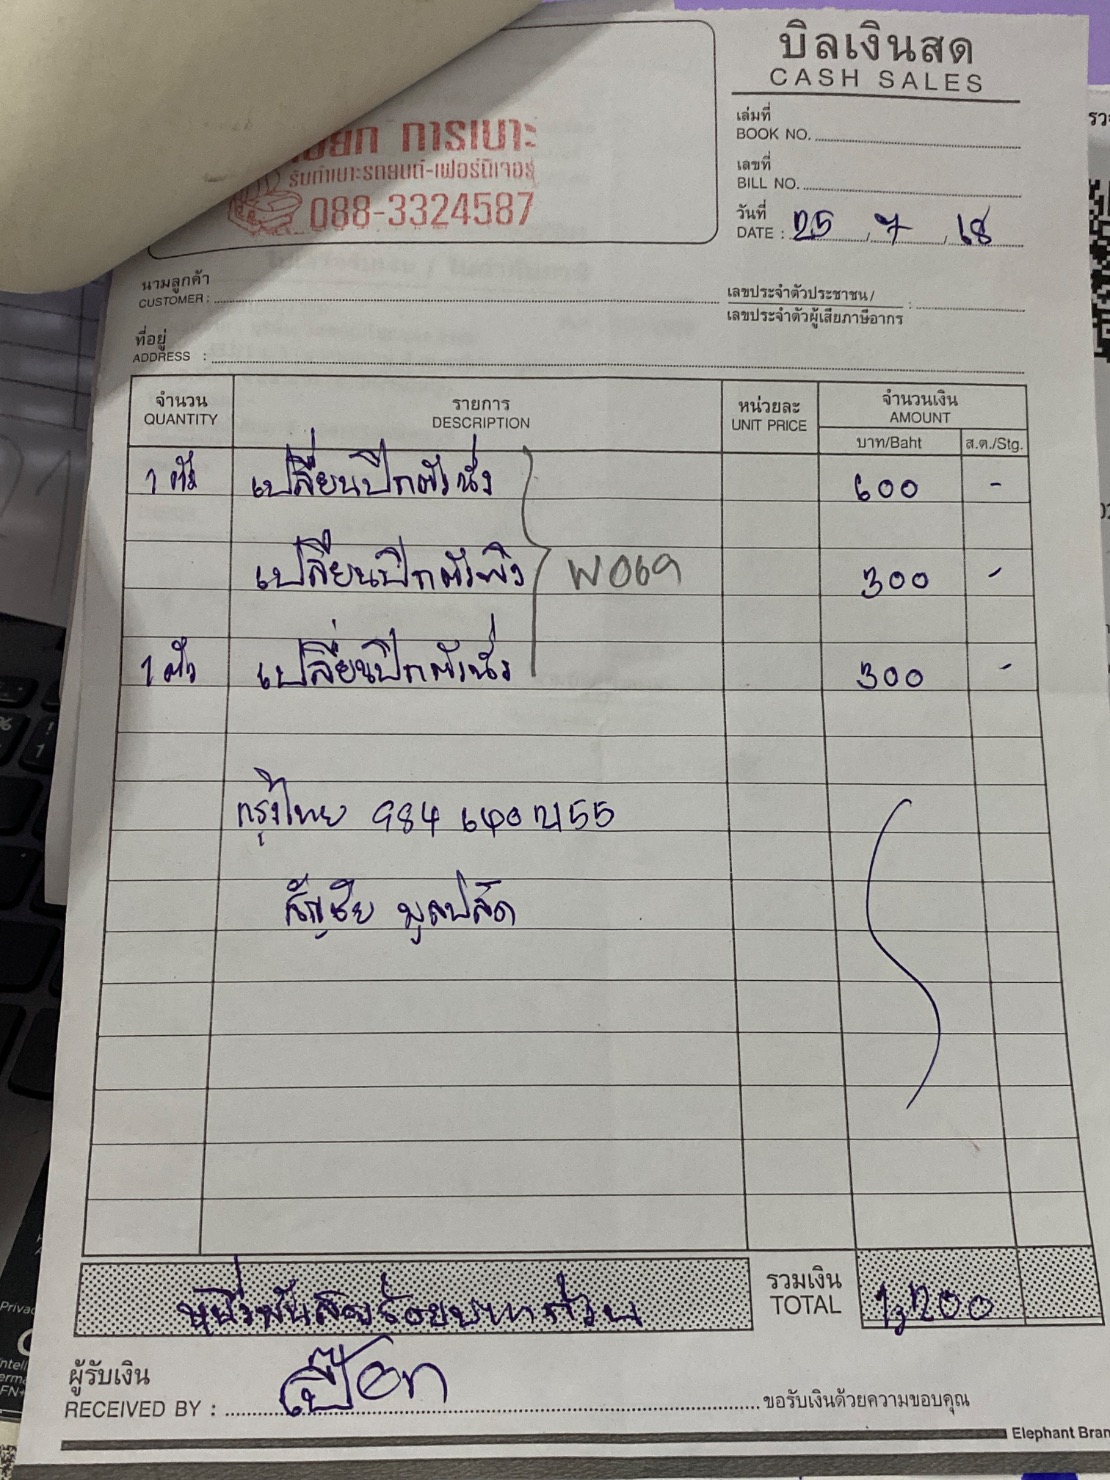 บิลเงินสด
CASH SALES
เล่มที่
BOOK NO.
เลขที่
BILL NO.
วันที่
DATE : 25 / 7 / 68
การเบาะ
รับทำเบาะรถยนต์-เฟอร์นิเจอร์
088-3324587
นามลูกค้า
CUSTOMER :
เลขประจำตัวประชาชน/
เลขประจำตัวผู้เสียภาษีอากร :
ที่อยู่
ADDRESS :
จำนวน รายการ หน่วยละ จำนวนเงิน
QUANTITY DESCRIPTION UNIT PRICE AMOUNT
บาท/Baht ส.ต./Stg.
1 ตัว เปลี่ยนปีกตัวนั่ง 600 -
เปลี่ยนปีกตัวพิง W069 300 -
1 ตัว เปลี่ยนปีกตัวนั่ง 300 -
กรุงไทย 984
สัญชัย มูลปลัด
หนึ่งพันสองร้อยบาทถ้วน
รวมเงิน
TOTAL 1,200
ผู้รับเงิน
RECEIVED BY : เปี๊ยก ขอรับเงินด้วยความขอบคุณ
Elephant Bran